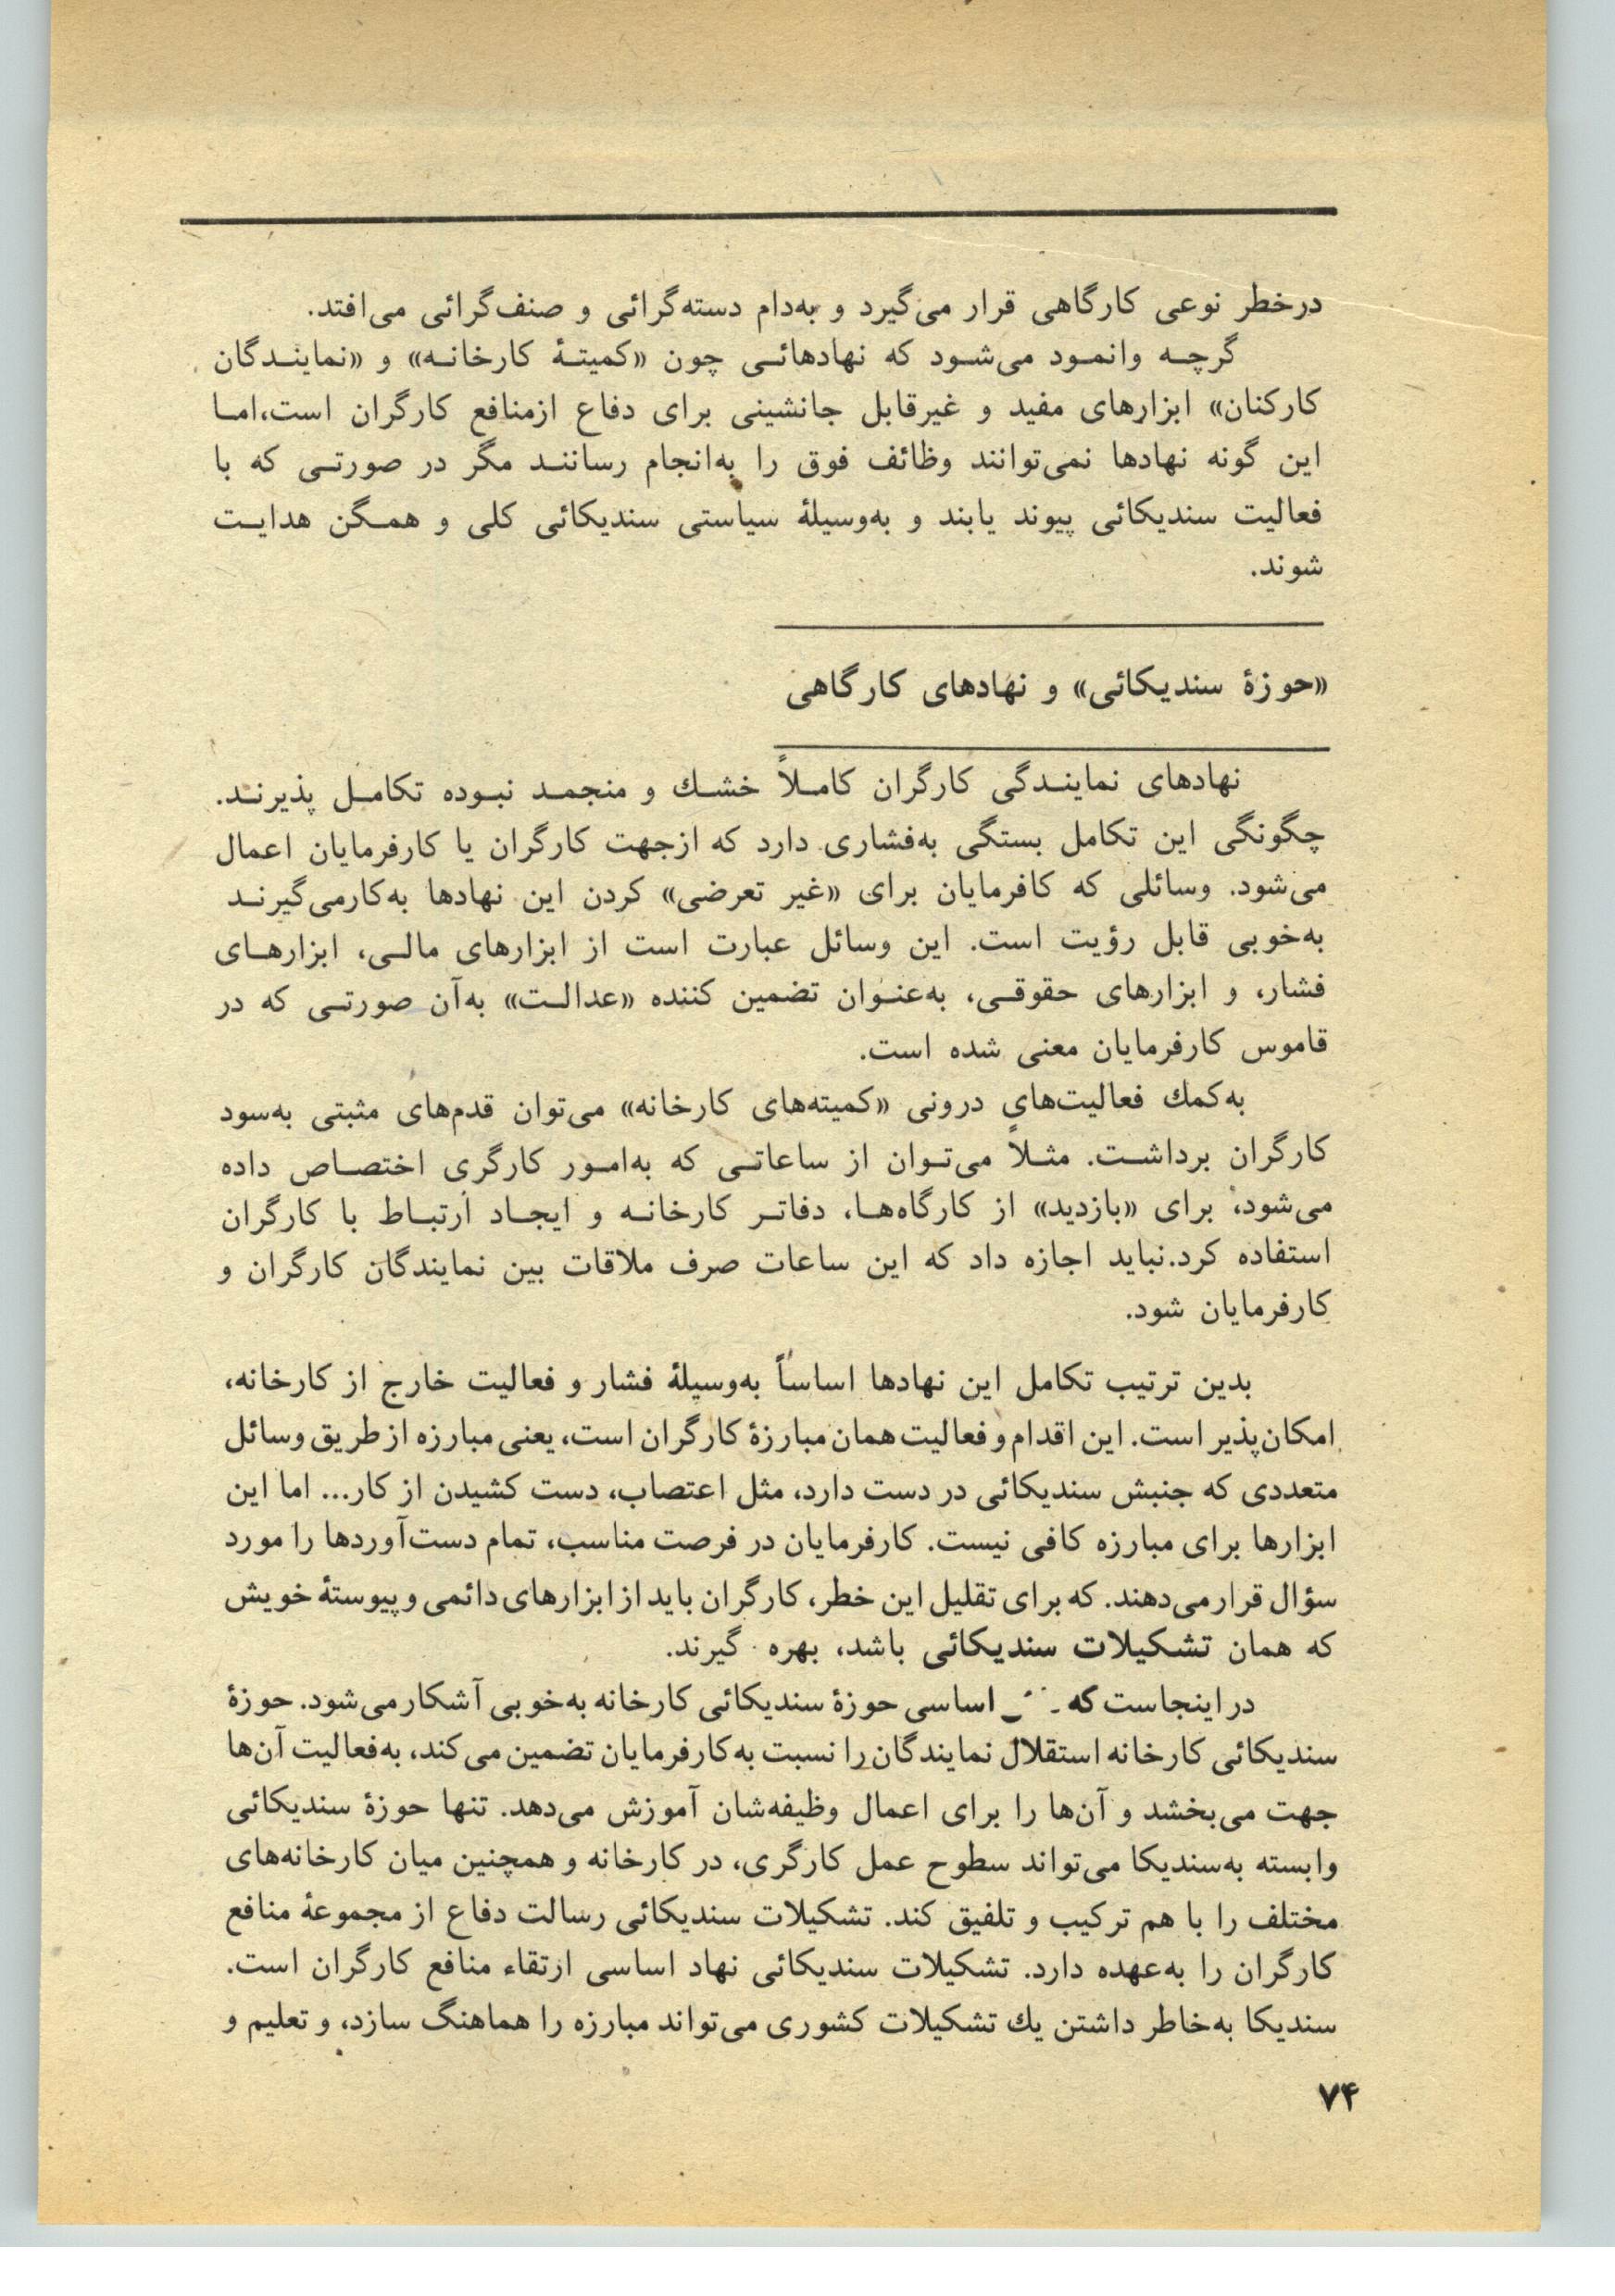 درخطر نوعی کارگاهی قرار می‌گیرد و به‌دام دسته‌گرائی و صنف‌گرائی می‌افتد.
گرچه وانمود می‌شود که نهادهائی چون «کمیتهٔ کارخانه» و «نمایندگان
کارکنان» ابزارهای مفید و غیرقابل جانشینی برای دفاع ازمنافع کارگران است،اما
این گونه نهادها نمی‌توانند وظائف فوق را به‌انجام رسانند مگر در صورتی که با
فعالیت سندیکائی پیوند یابند و به‌وسیلهٔ سیاستی سندیکائی کلی و همگن هدایت
شوند.
«حوزهٔ سندیکائی» و نهادهای کارگاهی
نهادهای نمایندگی کارگران کاملاً خشك و منجمد نبوده تکامل پذیرند.
چگونگی این تکامل بستگی به‌فشاری دارد که ازجهت کارگران یا کارفرمایان اعمال
می‌شود. وسائلی که کافرمایان برای «غیر تعرضی» کردن این نهادها به‌کارمی‌گیرند
به‌خوبی قابل رؤیت است. این وسائل عبارت است از ابزارهای مالی، ابزارهای
فشار، و ابزارهای حقوقی، به‌عنوان تضمین کننده «عدالت» به‌آن صورتی که در
قاموس کارفرمایان معنی شده است.
به‌کمك فعالیت‌هاي درونی «کمیته‌های کارخانه» می‌توان قدم‌های مثبتی به‌سود
کارگران برداشت. مثلاً می‌توان از ساعاتی که به‌امور کارگری اختصاص داده
می‌شود، برای «بازدید» از کارگاه‌ها، دفاتر کارخانه و ایجاد ارتباط با کارگران
استفاده کرد.نباید اجازه داد که این ساعات صرف ملاقات بین نمایندگان کارگران و
کارفرمایان شود.
بدین ترتیب تکامل این نهادها اساساً به‌وسیلهٔ فشار و فعالیت خارج از کارخانه،
امکان‌پذیر است. این اقدام و فعالیت همان مبارزهٔ کارگران است، یعنی مبارزه از طریق وسائل
متعددی که جنبش سندیکائی در دست دارد، مثل اعتصاب، دست کشیدن از کار... اما این
ابزارها برای مبارزه کافی نیست. کارفرمایان در فرصت مناسب، تمام دست‌آوردها را مورد
سؤال قرار می‌دهند. که برای تقلیل این خطر، کارگران باید از ابزارهای دائمی و پیوستهٔ خویش
که همان تشکیلات سندیکائی باشد، بهره گیرند.
در اینجاست که اساسی حوزهٔ سندیکائی کارخانه به‌خوبی آشکار می‌شود. حوزهٔ
سندیکائی کارخانه استقلال نمایندگان را نسبت به‌کارفرمایان تضمین می‌کند، به‌فعالیت آن‌ها
جهت می‌بخشد و آن‌ها را برای اعمال وظیفه‌شان آموزش می‌دهد. تنها حوزهٔ سندیکائی
وابسته به‌سندیکا می‌تواند سطوح عمل کارگری، در کارخانه و همچنین میان کارخانه‌های
مختلف را با هم ترکیب و تلفیق کند. تشکیلات سندیکائی رسالت دفاع از مجموعهٔ منافع
کارگران را به‌عهده دارد. تشکیلات سندیکائی نهاد اساسی ارتقاء منافع کارگران است.
سندیکا به‌خاطر داشتن یك تشکیلات کشوری می‌تواند مبارزه را هماهنگ سازد، و تعلیم و
۷۴